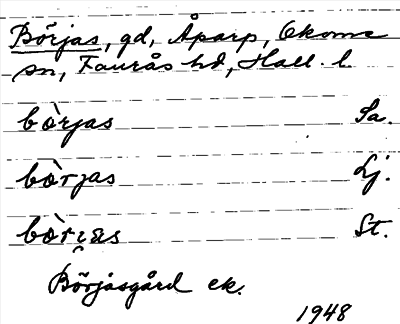 Börjas, gd, Åparp, Okome
sn, Faurås hd, Hall. l.
bòrjas Sa.
bòrjas Lj.
St.
Börjasgård ek.
1948